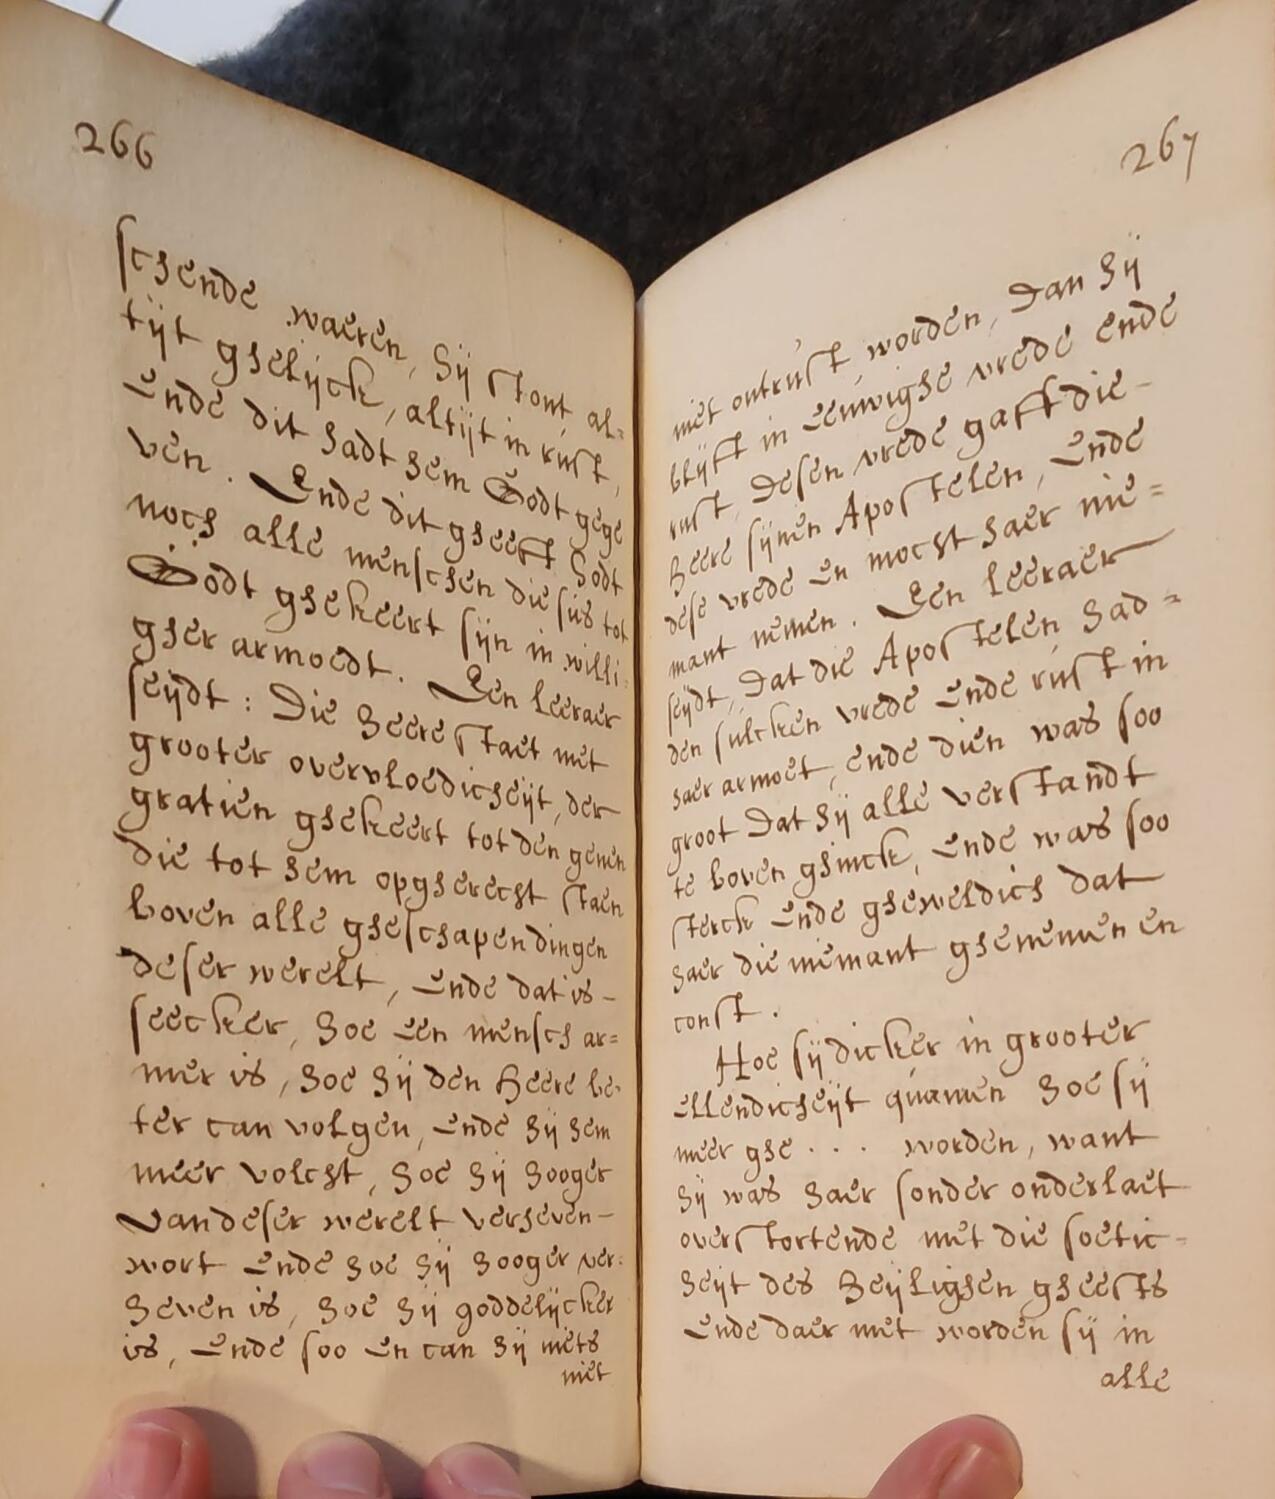 266
schende waeren, hij stont al=
tijt ghelijck, altijt in rust,
Ende dit hadt hem Godt gege
ven. Ende dit gheeft Godt
noch alle menschen die sus tot
Godt ghekeert sijn in willi
gher armoedt. Een leeraer
seijdt: Die Heere staet met
grooter overvloedicheijt, der
gratien ghekeert tot den genen
die tot hem opgherecht staen
boven alle gheschapen dingen
deser werelt, Ende dat is -
seecker, hoe een mensch ar=
mer is, hoe hij den Heere be-
ter can volgen, ende hij hem
meer volcht, hoe hij hooger
van deser werelt verheven -
wort ende hoe hij hooger ver:
heven is, hoe hij goddelijcker
is, ende soo en can hij niets
niet
267
niet ontrust worden, dan hij
blijft in eeuwighe vrede ende
rust, desen vrede gafft die -
Heere sijnen Apostelen, ende
dese vrede en mocht haer nie=
mant nemen. Een leeraer
seijdt, dat die Apostelen had=
den sulcken vrede ende rust in
haer armoet, ende dien was soo
groot dat hij alle verstandt
te boven ghinck, ende was soo
sterck ende gheweldich dat
haer die niemant ghenemen en
const.
Hoe sij dicker in grooter
ellendicheijt quamen hoe sij
meer ghe . . . worden, want
hij was haer sonder onderlaet
overstortende met die soetic=
heijt des Heijlighen gheests
Ende daer met worden sij in
alle